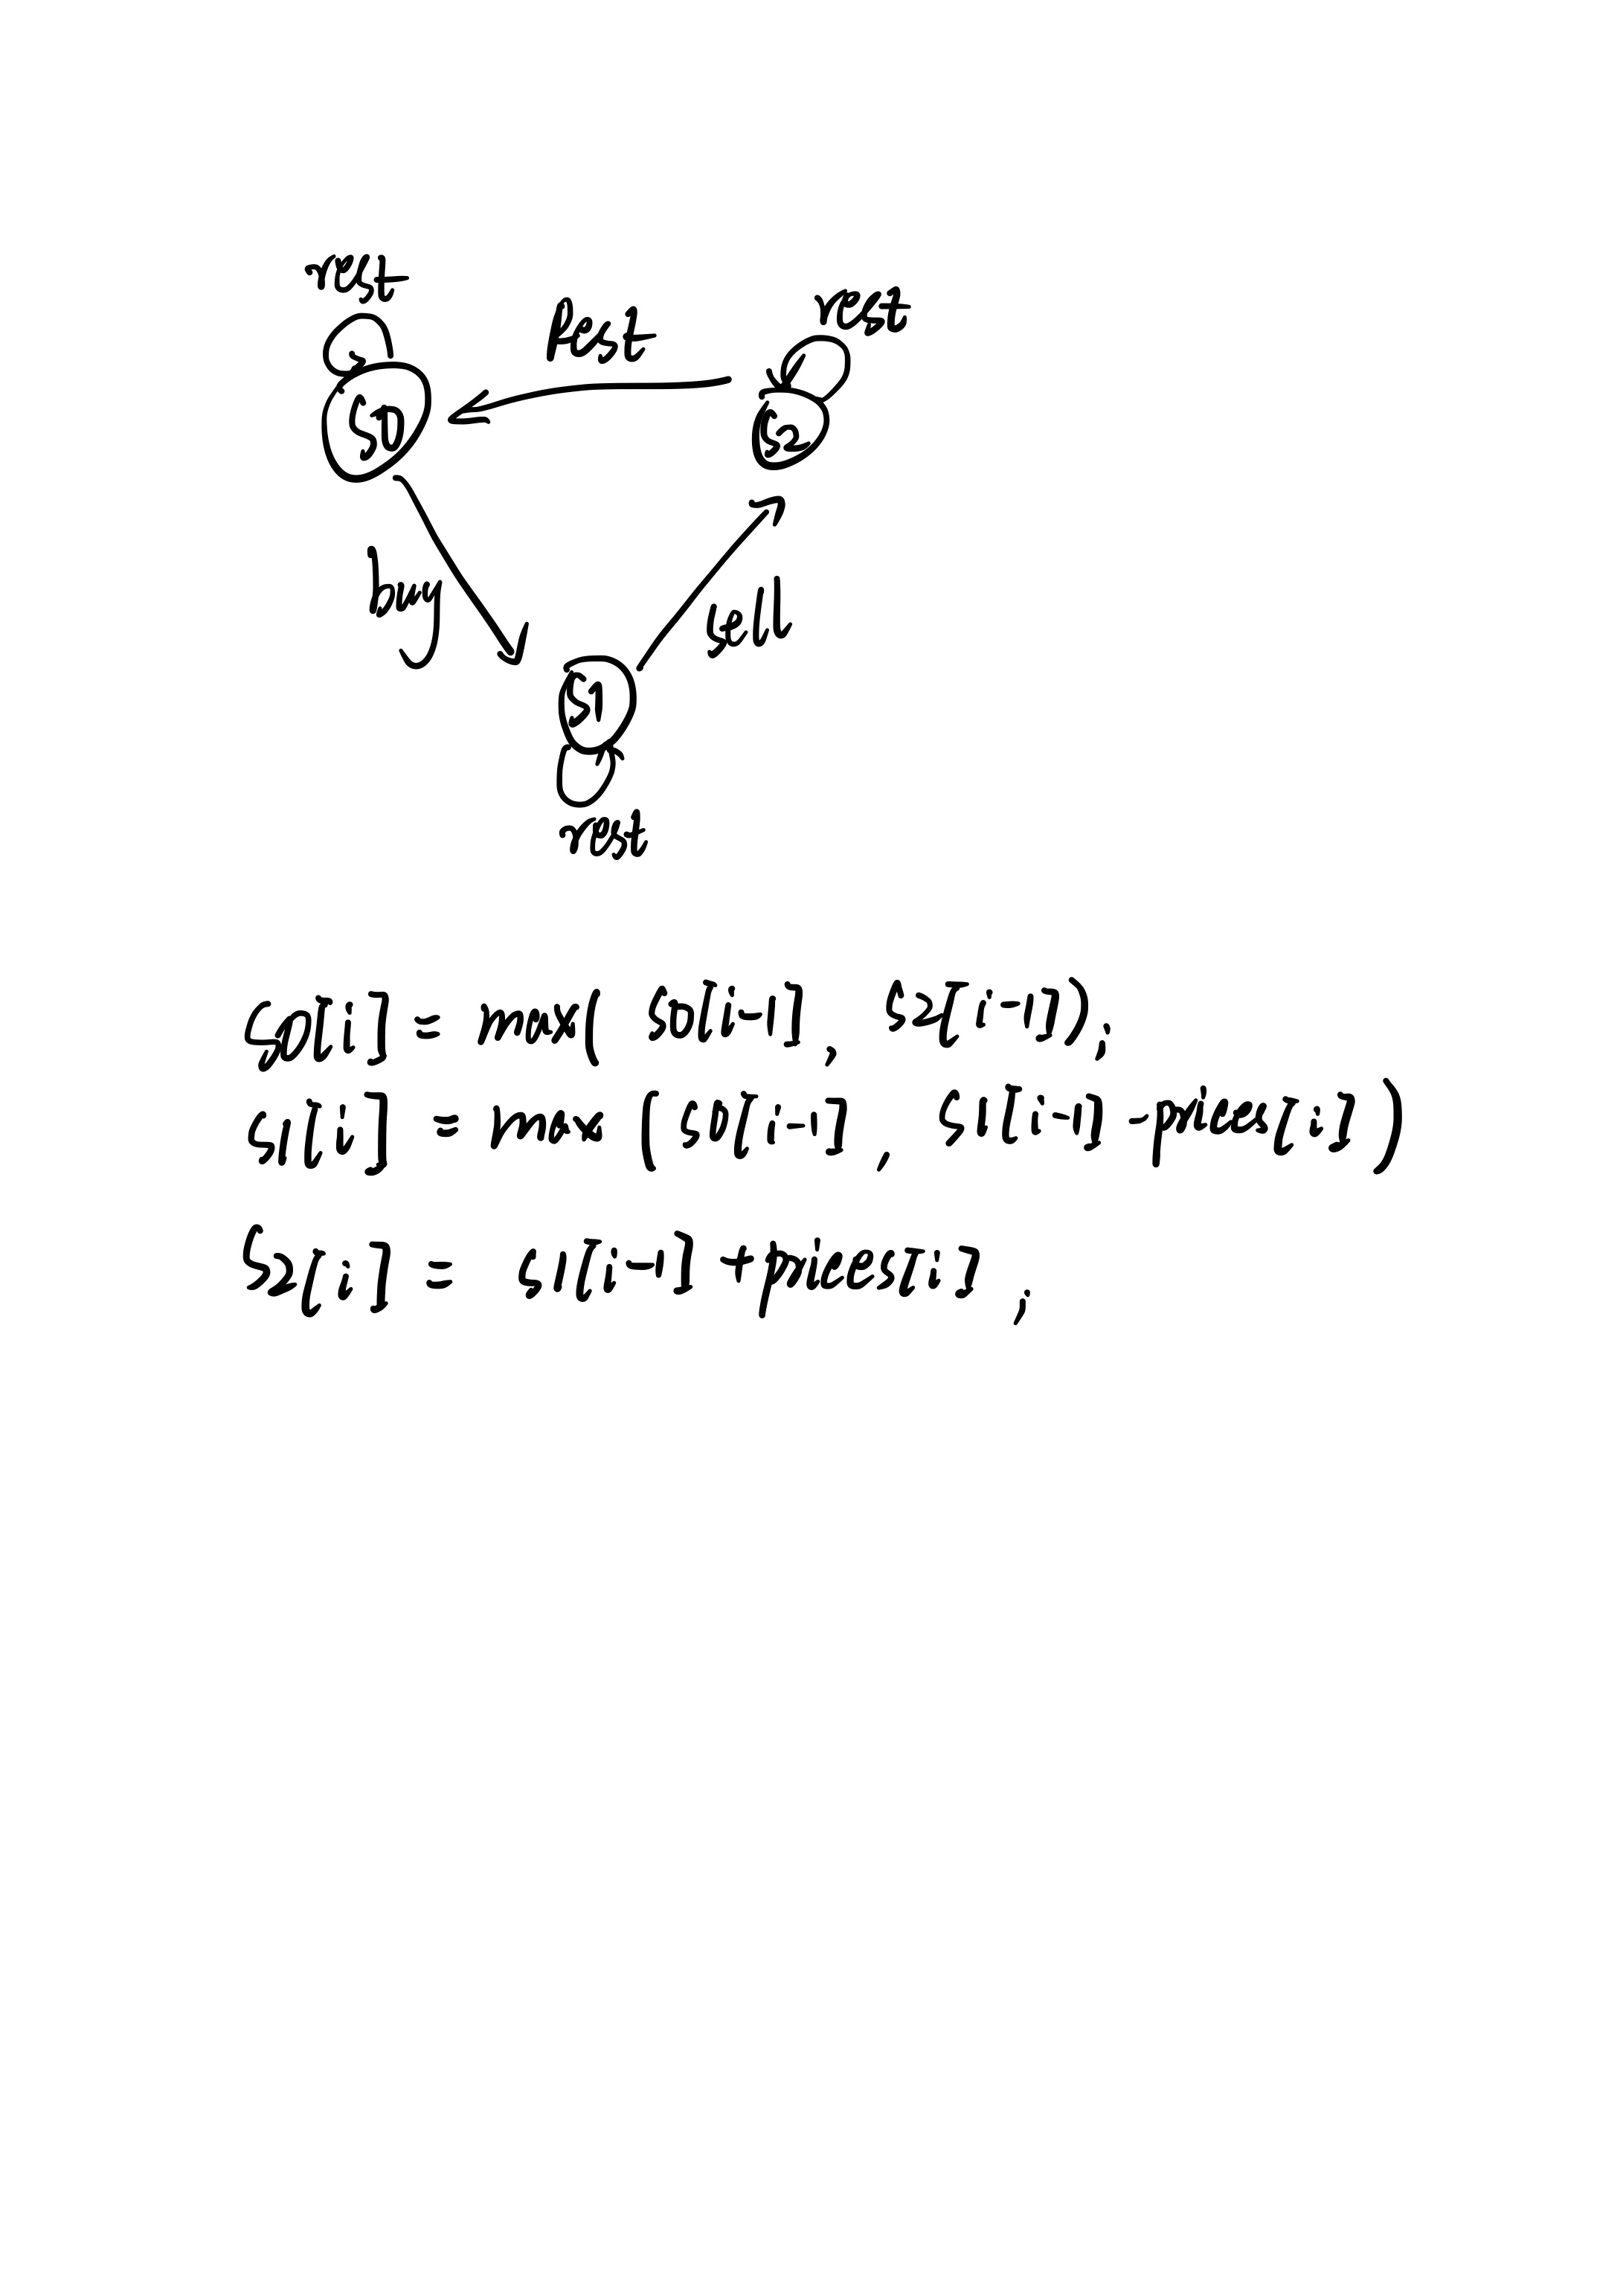 rest
Rest
rest
S0
S2
buy
sell
S1
rest
S0[i] = max( S0[i-1], S2[i-1]);
S1[i] = max (S0[i-1], S1[i-1] -prices[i])
S2[i] = S1[i-1] +prices[i] ;